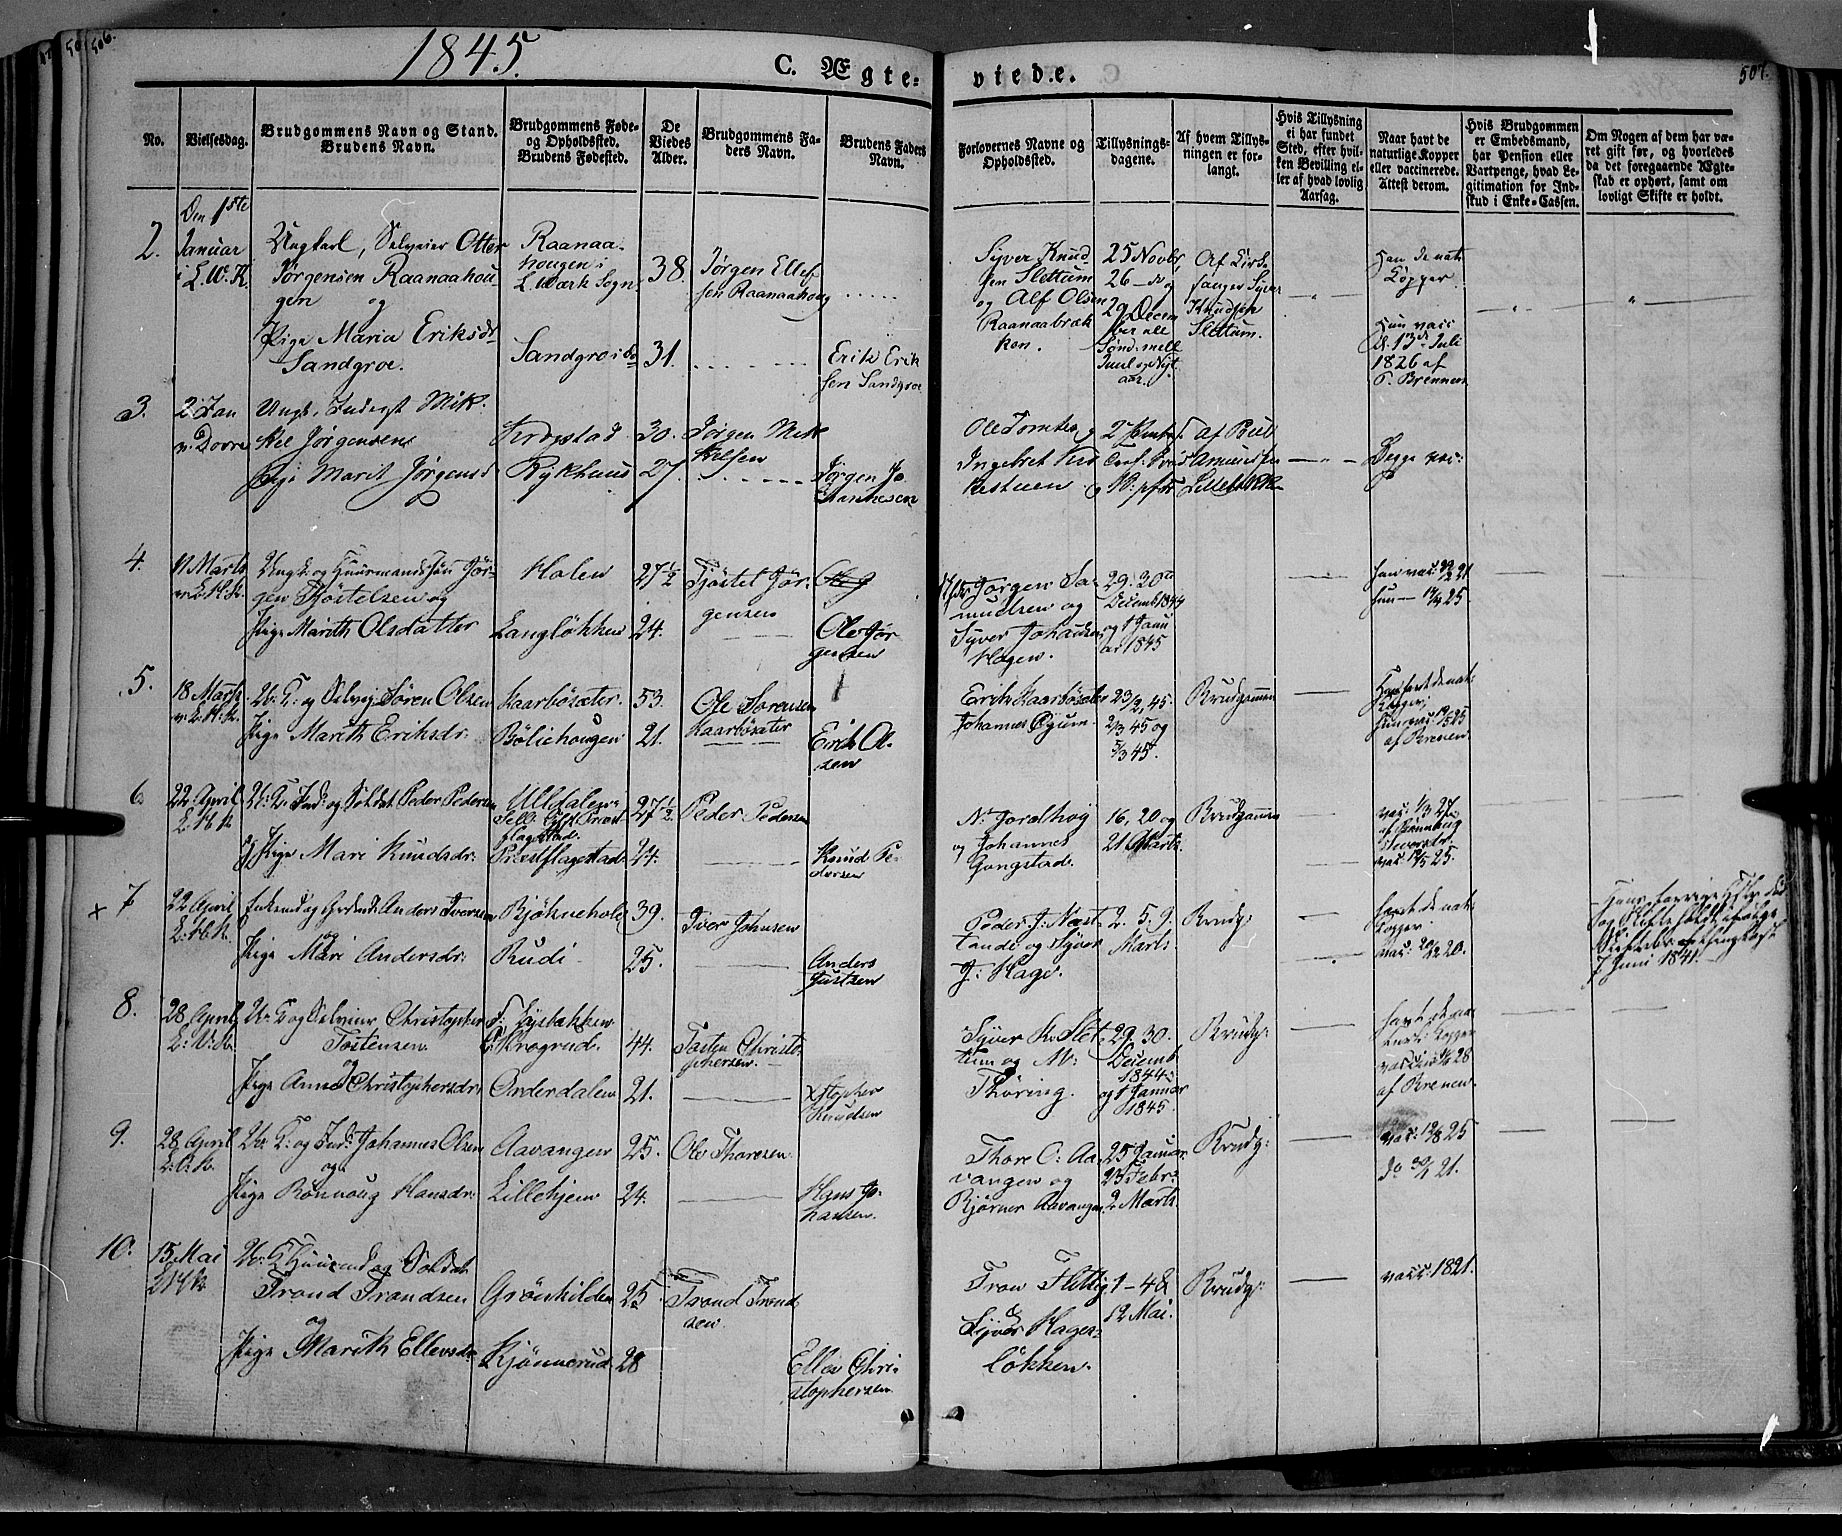 506.
1845.
C. Ægte-
viede.
507.
No.
Vielsesdag.
Brudgommens Navn og Stand.
Brudens Navn.
Brudgommens Føde-
og Opholdssted.
Brudens Fødested.
De
Viedes
Alder.
Brudgommens Fa-
ders Navn.
Brudens Faders
Navn.
Forlovernes Navne og
Opholdssted.
Tillysnings-
dagene.
Af hvem Tillys-
ningen er for-
langt.
Hvis Tillysning
ei har fundet
Sted, efter hvil-
ken Bevilling el-
ler af hvad lovlig
Aarsag.
Naar havt de
naturlige Kopper
eller vaccinerede.
Attest derom.
Hvis Brudgommen
er Embedsmand,
har Pension eller
Vartpenge, hvad Le-
gitimation for Ind-
skud i Enke-Cassen.
Om Nogen af dem har væ-
ret gift før, og hvorledes
da det foregaaende Ægte-
skab er ophørt, samt om
lovligt Skifte er holdt.
2.
Den 1ste
Januar
i L. W. K.
Ungkarl, Selveier Otter
Jørgensen Raanaahou-
gen og
Pige Maria Eriksdr
Sandgroe.
Raanaa-
hougen i
L. Værk Sogn
Sandgroe i do
38.
31.
Jørgen Ellef
sen Raanaahoug
Erik Erik
sen Sandgroe
Syver Knud-
sen Slettum
og Alf Olsen
Raanaabræk
ken.
25 Novbr,
26 - do og
29 Decem
ber alle
Sønd. mell
Juul og Nyt
aar.
Af Kirke-
sanger Syver
Knudsen
Slettum.
Han de nat.
Kopper.
Hun vacc
d. 13de Juli
1826 af
P. Brennen
3.
2 Jan
v. Dovre
Ungk. Inderst Mik-
kel Jørgensen
Pige Marit Jørgensd
Krogstad
Rykhuus
30.
27.
Jørgen Mik
kelsen
Jørgen Jo
hannesen
Ole Tomten og
Ingebret
af
Amundsen
Begge vac:
4.
11 Marts
v. L. H. K.
Ungk. og Huusmandssøn Jør-
gen Tjøstelsen og
Pige Marith Olsdatter
Holen
Langløkken
27½
24.
Tjøstel Jør-
gensen
Ole Jør
gensen
Jørgen Sa-
muelsen og
Syver Johansen
Hagen.
29. 30te
Decemb 1844
og 1 Janu
ar 1845
han vac: 22/2 21
hun — 14/9 25
5.
18 Marts
v. L. H. K.
U: K: og Selvej. Søren Olsen
Pige Marith Eriksdr.
Kaarbøsæter.
Bøliehougen
53.
21.
Ole Sørensen
Kaarbøsæter
Erik Ol-
sen
Erik Kaarbøsæter
Johannes Øyum.
23/2 45.
2/3 45 og
5/3 45.
Brudgommen
Han havt de nat:
Kopper,
hun vac: 19/5 25
af Brenen.
6.
22 April
L. H. K.
U: K: Ind: og Soldat Peder Pedersen
og Pige Mari Knudsdr.
Ulldalen
Præstflagestad
27½
24.
Peder Pedersen
Knud Pe-
dersen
N: Joralhoug
og Johannes
Gangstad.
16, 20 og
21 Marts.
Brudgommen
vac: 1/3 27
vac: 19/5 25.
× 7
22 April
L: H. K.
Enkemd og Gaardmd: Anders Iversen
og
Pige Mari Andersdr.
Bjørnehole
Rudi
39.
25.
Iver Johnsen
Anders
Justsen
Peder J: Næst
lande og Syver
J: Hage.
2. 5. 9.
Marts.
Brudg:
havt de nat:
Kopper
vac: 20/12 20.
7 Juni 1841.
8.
28 April
L: V: K.
U: K og Selveier Christopher
Tostensen.
og
Pige Anne Christophersdr:
F: Lystakken
Krogrud.
Onderdalen
44.
21.
Tosten Christo
phersen.
Xstopher
Knudsen
Syver K. Slet
tum og M:
Thøring.
29. 30.
Decemb
1844
og 1 Januar
1845.
Brudg:
havt de na-
turl: Kopper
vac: 28
af Brenen.
9.
28 April
L: V: K.
U: K: og Ind: Johannes Olsen
og
Pige Rønnoug Hansdr:
Aavangen
Lillehjem
25.
24.
Ole Thoresen.
Hans Jo-
hansen.
Thore O: Aa-
vangen og
Bjørner Aavangen
25 Januar
23 Febr:
2 Marts.
Brudg:
vac: 12/8 25
do 30/1 21.
10.
15 Mai
L H K
U: K Huusmd og Soldat
Trond Trondsen
og
Pige Marith Ellevsdr
Grønhilden
Kjønnerud
25
28
Trond Trond
sen.
Ellev Chri
stophersen.
Tron Flettig
og
Syver Hages-
løkken.
1 - 4 &
12 Mai.
Brudg:
vacc: 1821.